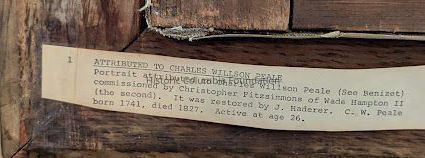 1
ATTRIBUTED TO CHARLES WILLSON PEALE
Portrait attributed to Charles Willson Peale (See Benizet)
Historic Columbia Foundation
commissioned by Christopher Fitzsimmons of Wade Hampton II
(the second). It was restored by J. Haderer. C. W. Peale
born 1741, died 1827. Active at age 26.